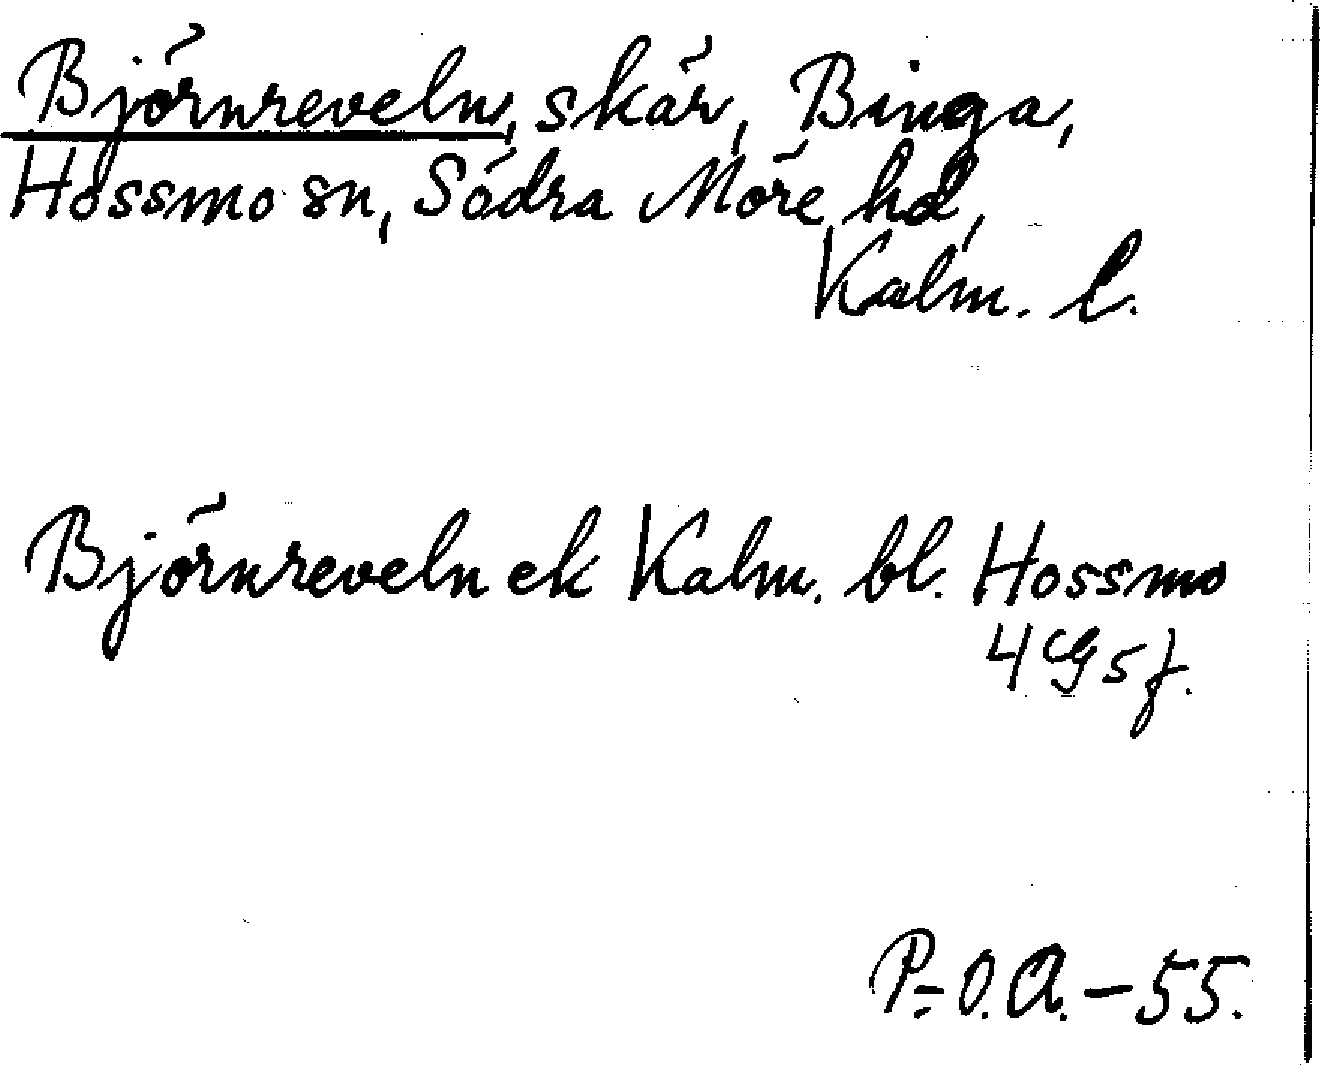 Björnreveln, skär, Binga,
Hossmo sn, Södra Möre hd,
Kalm. l.
Björnreveln ek Kalm. bl. Hossmo
4 G 5 f.
P.-O.A.-55.